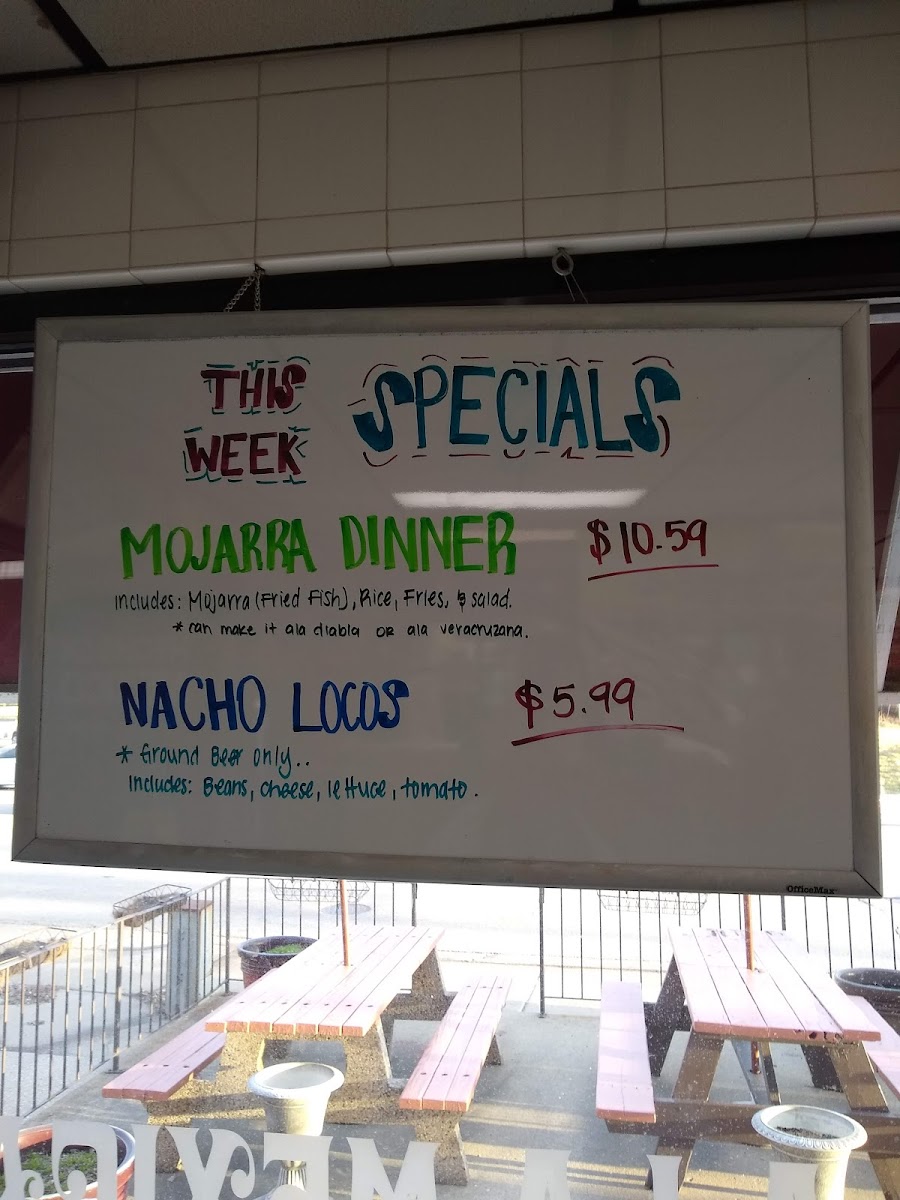 THIS WEEK SPECIALS
MOJARRA DINNER $10.59
Includes: Mojarra (Fried Fish), Rice, Fries, & salad.
* can make it ala diabla OR ala veracruzana.
NACHO LOCOS $5.99
* Ground Beef only..
Includes: Beans, cheese, lettuce, tomato.
OfficeMax